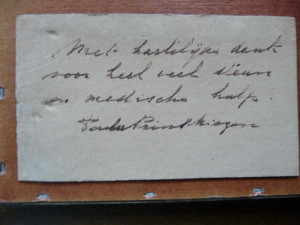 Met hartelijke dank
voor heel veel steun
en medische hulp.